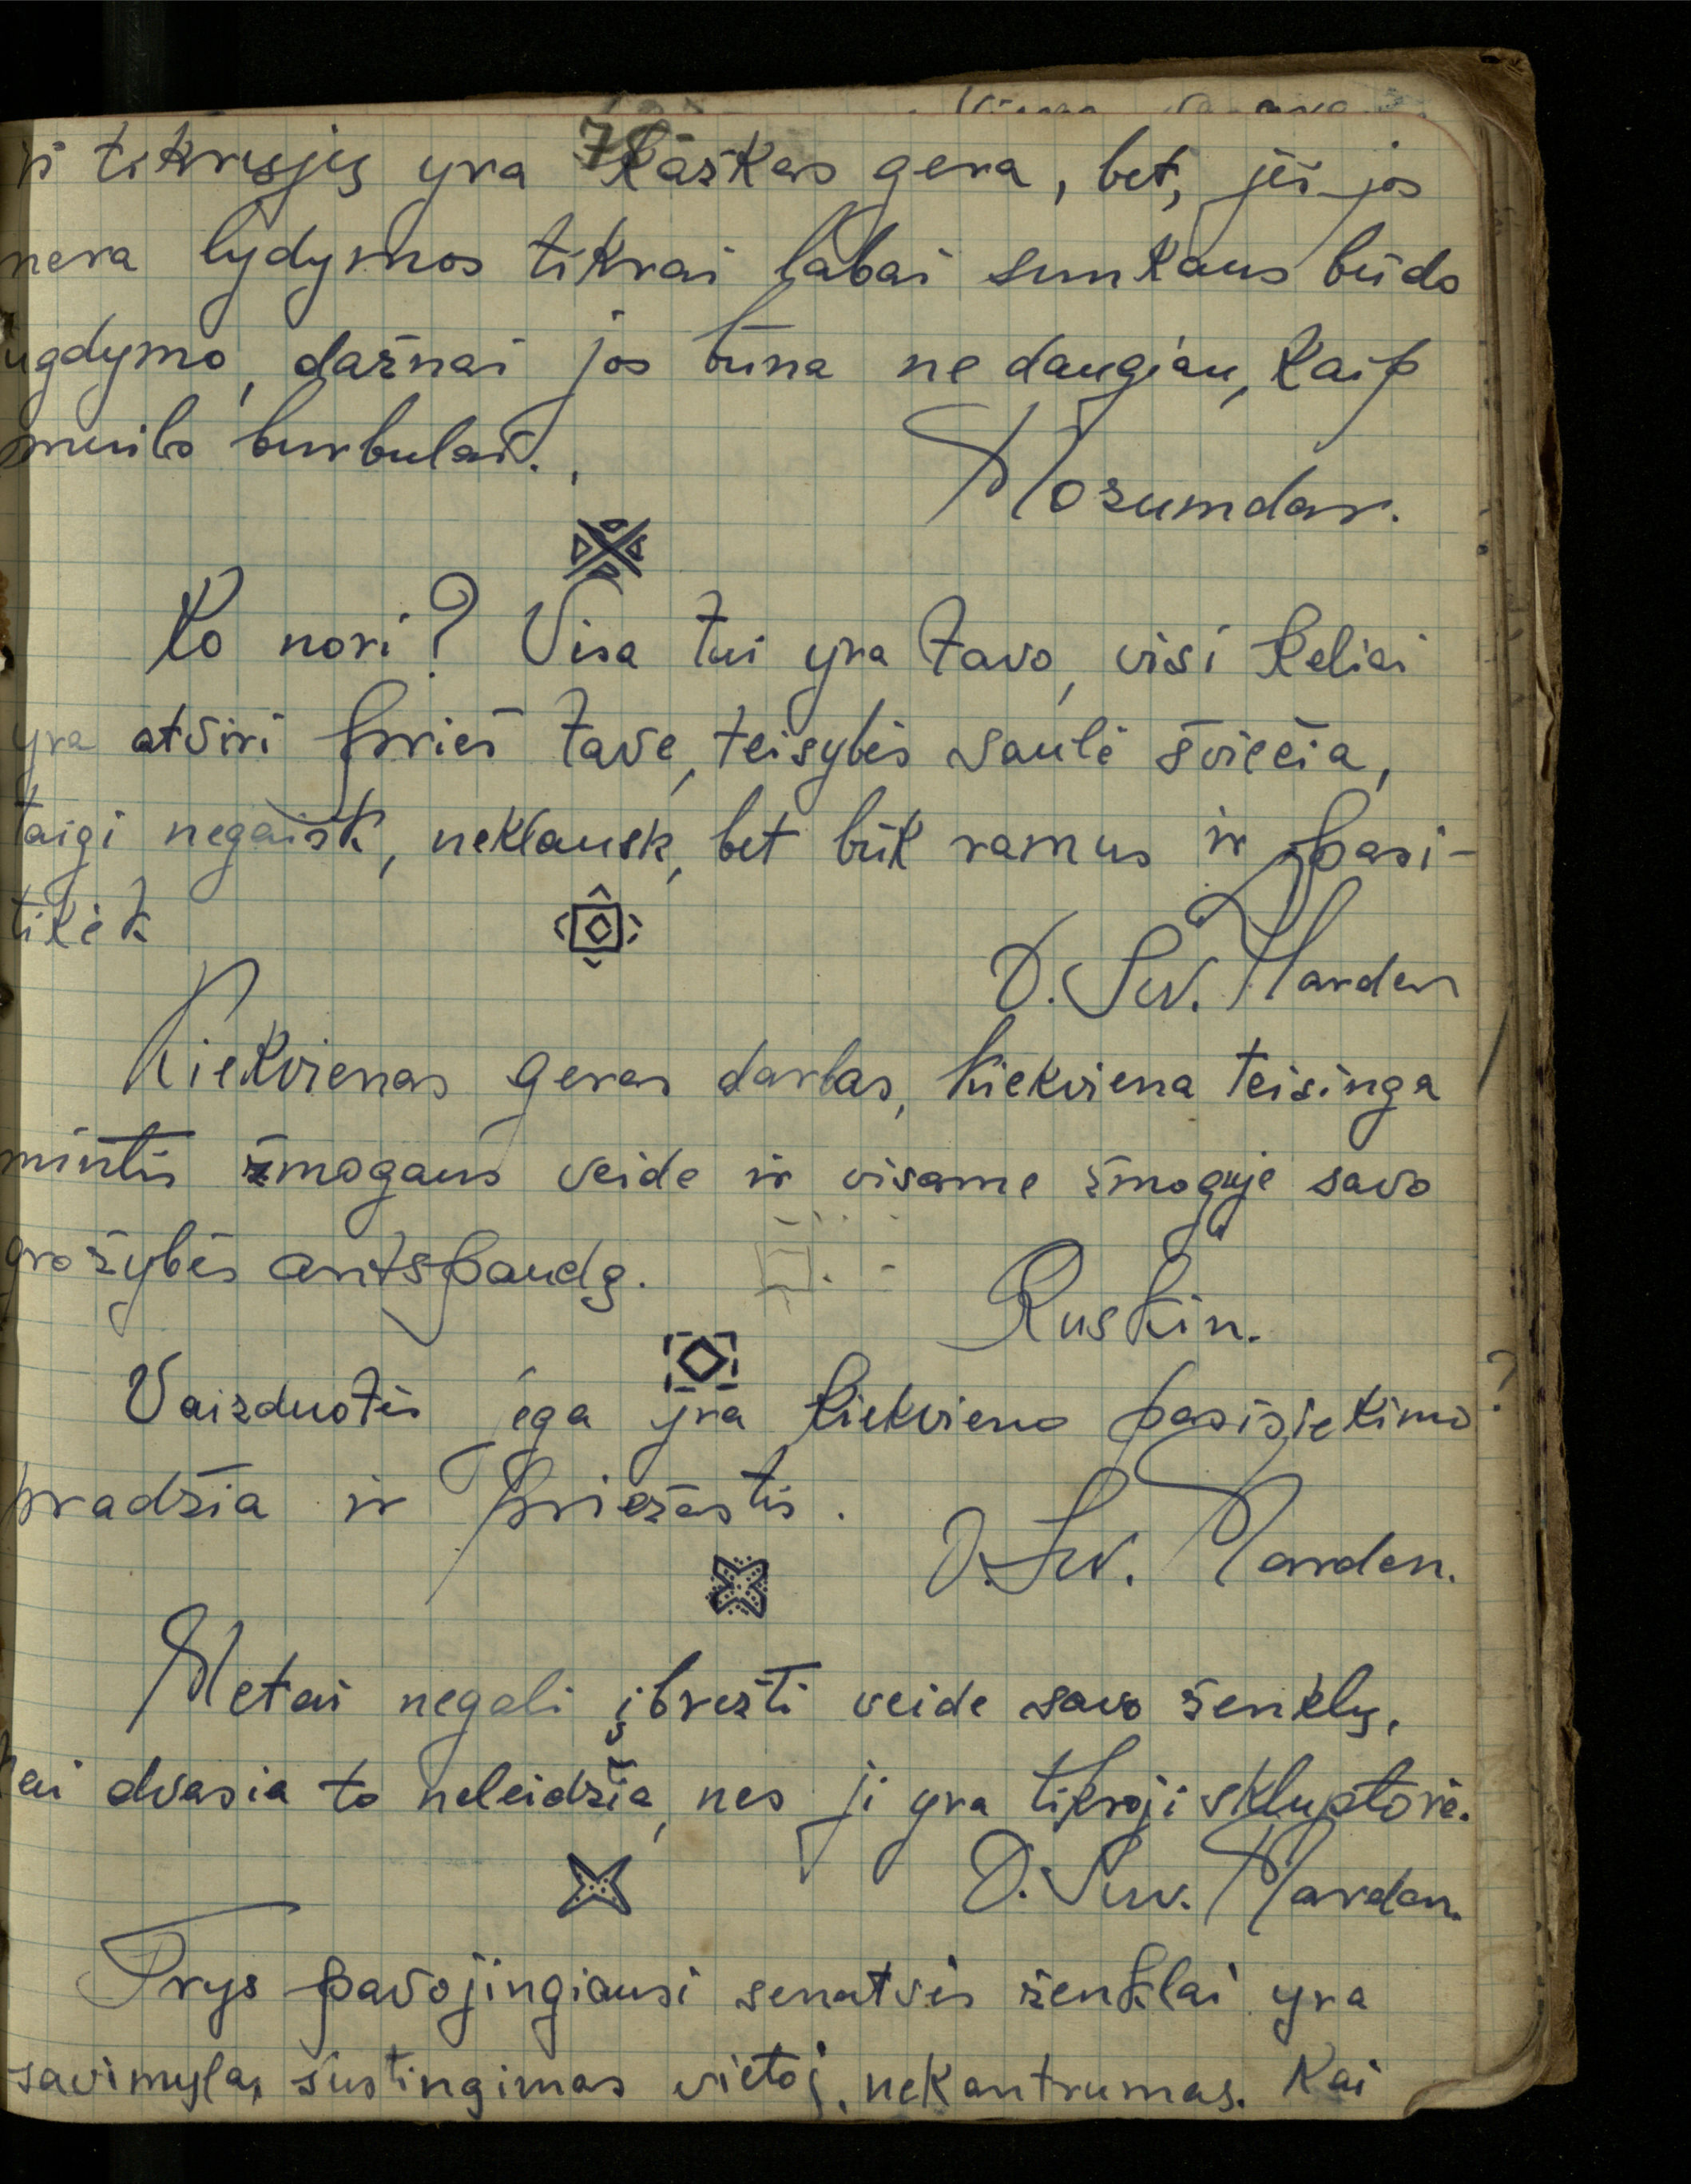 78
iš tikrųjų yra kažkas gera, bet, jei jos
nėra lydymos tikrai labai sunkaus būdo
ugdymo, dažnai jos būna ne daugiau, kaip
muilo burbulai.
Mozumdar.
Ko nori? Visa tai yra tavo, visi keliai
yra atviri prieš tave, teisybės saulė šviečia,
taigi negaišk, neklausk, bet būk ramus ir pasi-
tikėk
O. Sw. Marden
Kiekvienas geras darbas, kiekviena teisinga
mintis žmogaus veide ir visame žmoguje savo
grožybės antspaudą.
Ruskin.
Vaizduotės jėga yra kiekvieno pasisiekimo
pradžia ir priežastis.
O. Sw. Marden.
Metai negali įbrėžti veide savo ženklų,
kai dvasia to neleidžia, nes ji yra tikroji skluptorė.
O. Sw. Marden.
Trys pavojingiausi senatvės ženklai yra
savimyla, sustingimas vietoj, nekantrumas. Kai